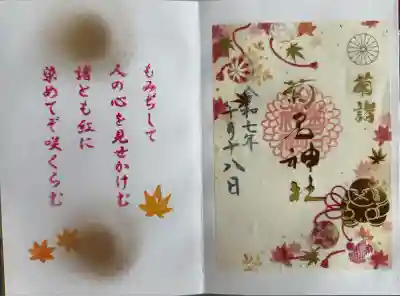 菊詣
菊名神社
令和七年
十月十八日
もみぢして
人の心を見せかけむ
諸とも紅に
染めてぞ咲くらむ